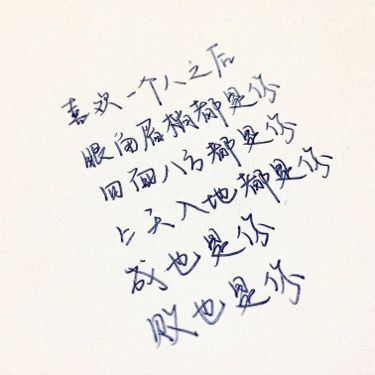 喜欢一个人之后
眼角眉梢都是你
四面八方都是你
上天入地都是你
成也是你
败也是你